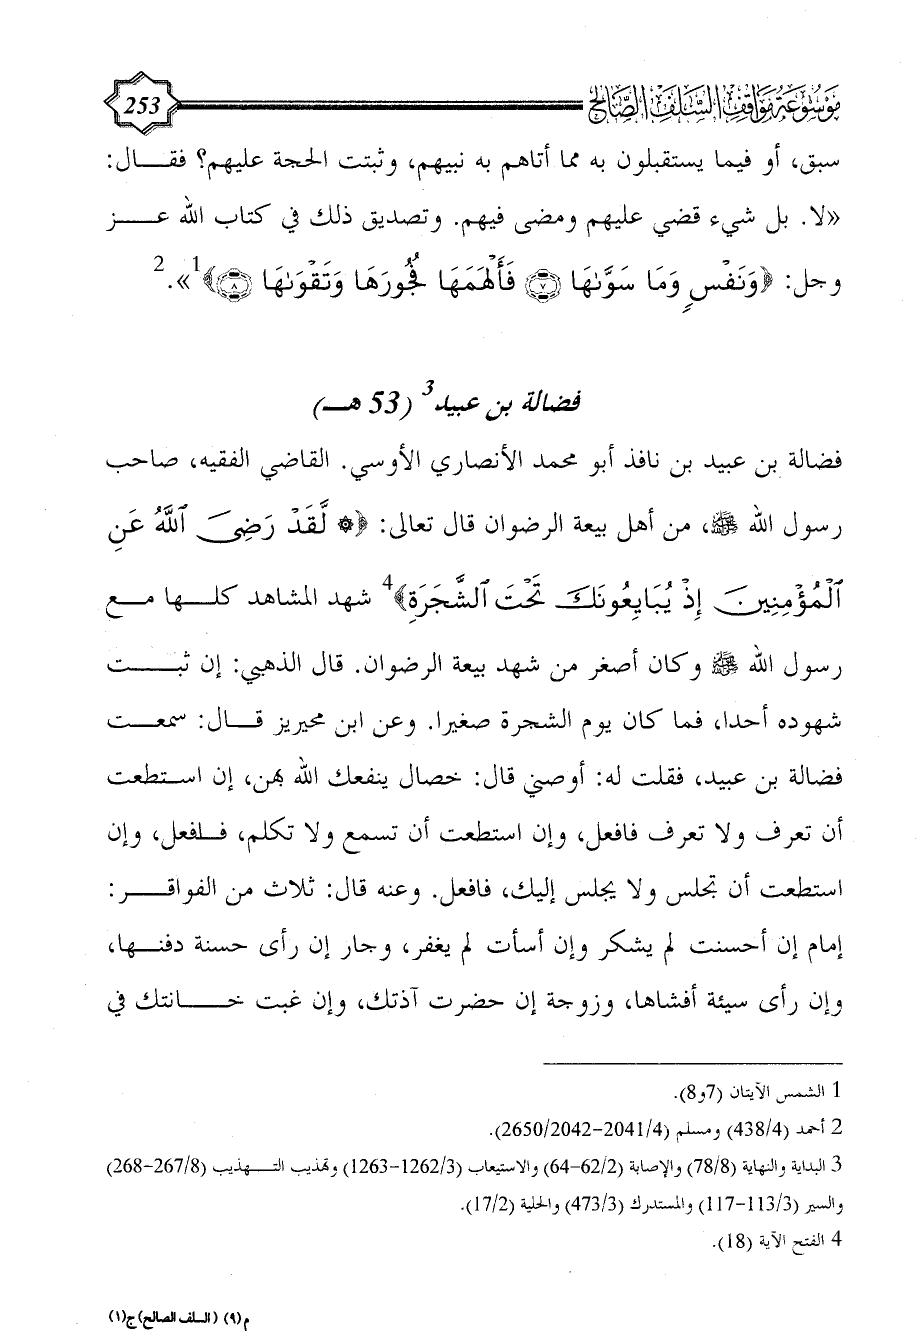 موسوعة مواقف السلف الصالح
253
سبق، أو فيما يستقبلون به مما أتاهم به نبيهم، وثبتت الحجة عليهم؟ فقال:
«لا. بل شيء قضي عليهم ومضى فيهم. وتصديق ذلك في كتاب الله عز
وجل: ﴿وَنَفْسٍ وَمَا سَوَّىٰهَا ﴿٧﴾ فَأَلْهَمَهَا فُجُورَهَا وَتَقْوَىٰهَا ﴿٨﴾﴾1». 2
فضالة بن عبيد3 (53 هـ)
فضالة بن عبيد بن نافذ أبو محمد الأنصاري الأوسي. القاضي الفقيه، صاحب
رسول الله ﷺ، من أهل بيعة الرضوان قال تعالى: ﴿۞ لَّقَدْ رَضِيَ ٱللَّهُ عَنِ
ٱلْمُؤْمِنِينَ إِذْ يُبَايِعُونَكَ تَحْتَ ٱلشَّجَرَةِ﴾4 شهد المشاهد كلها مع
رسول الله ﷺ وكان أصغر من شهد بيعة الرضوان. قال الذهبي: إن ثبت
شهوده أحدا، فما كان يوم الشجرة صغيرا. وعن ابن محيريز قال: سمعت
فضالة بن عبيد، فقلت له: أوصني قال: خصال ينفعك الله بهن، إن استطعت
أن تعرف ولا تعرف فافعل، وإن استطعت أن تسمع ولا تكلم، فلفعل، وإن
استطعت أن تجلس ولا يجلس إليك، فافعل. وعنه قال: ثلاث من الفواقر:
إمام إن أحسنت لم يشكر وإن أسأت لم يغفر، وجار إن رأى حسنة دفنها،
وإن رأى سيئة أفشاها، وزوجة إن حضرت آذتك، وإن غبت خانتك في
1 الشمس الآيتان (7و8).
2 أحمد (438/4) ومسلم (2041/4-2650/2042).
3 البداية والنهاية (78/8) والإصابة (62/2-64) والاستيعاب (1262/3-1263) وتهذيب التهذيب (267/8-268)
والسير (113/3-117) والمستدرك (473/3) والحلية (17/2).
4 الفتح الآية (18).
م(٩) (السلف الصالح)ج(١)